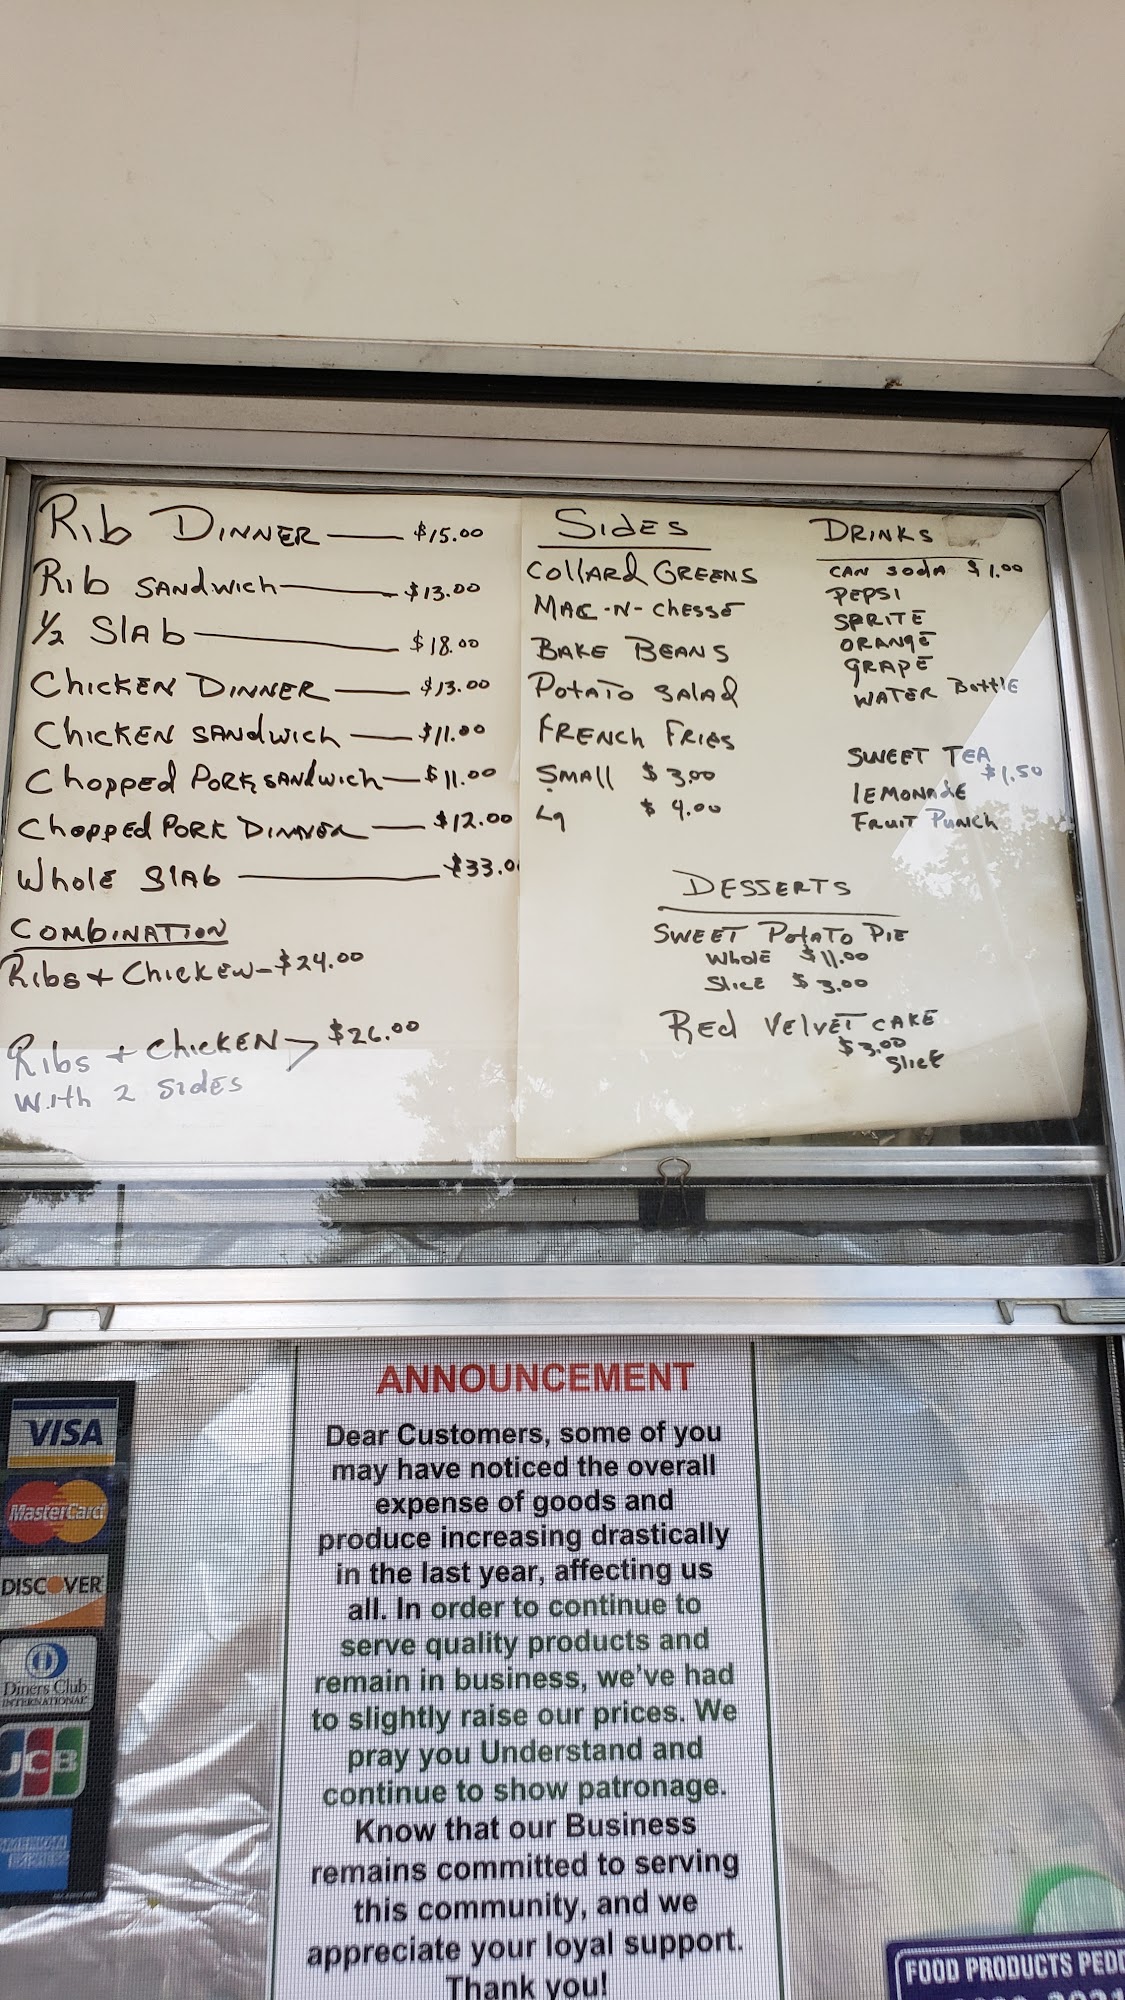 Rib DINNER — $15.00
Rib SANDwich — $13.00
1/2 Slab — $18.00
ChickEN DINNER — $13.00
ChickEN SANDwich — $11.00
Chopped PORK SANdwich — $11.00
Chopped PORK DINNER — $12.00
WholE SlAb — $33.0
COMbiNATION
Ribs + ChickEN - $24.00
Ribs + ChickEN → $26.00
With 2 SidES
SidES
CollARd GREENS
MAC-N-ChESSE
BAKE BEANS
PotATO SAlAd
FRENCH FRiES
SMAll $ 3.00
Lg $ 4.00
DRINKS
CAN SodA $ 1.00
PEPSI
SPRITE
ORANgE
GRAPE
WATER BottlE
SWEET TEA
$1.50
lEMONAdE
FRuiT PuNch
DESSERTS
SWEET PotATO PIE
WholE $11.00
SlicE $ 3.00
REd VElvET CAKE
$3.00
SlicE
VISA
MasterCard
DISCOVER
Diners Club
INTERNATIONAL
JCB
AMERICAN
EXPRESS
ANNOUNCEMENT
Dear Customers, some of you
may have noticed the overall
expense of goods and
produce increasing drastically
in the last year, affecting us
all. In order to continue to
serve quality products and
remain in business, we've had
to slightly raise our prices. We
pray you Understand and
continue to show patronage.
Know that our Business
remains committed to serving
this community, and we
appreciate your loyal support.
Thank you!
FOOD PRODUCTS PEDD